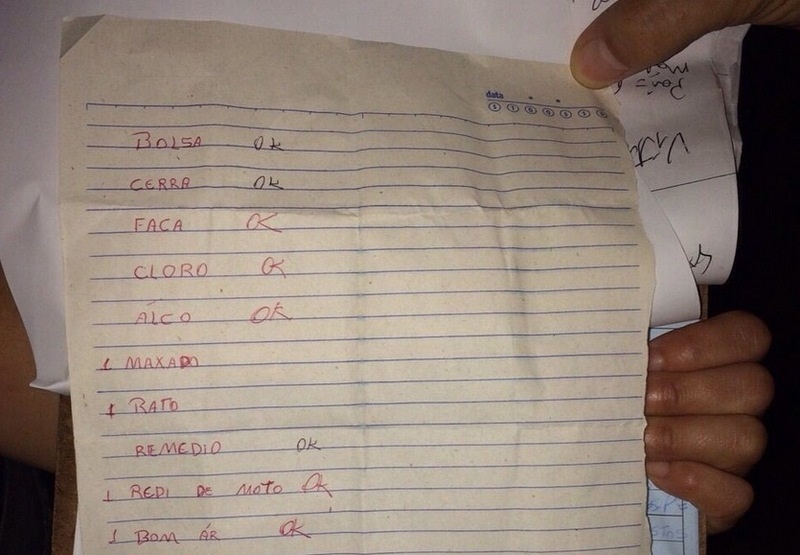 data
BOLSA OK
CERRA OK
FACA OK
CLORO OK
ÁLCO OK
1 MAXADO
1 RATO
REMEDIO OK
1 REDI DE MOTO OK
1 BOM ÁR OK